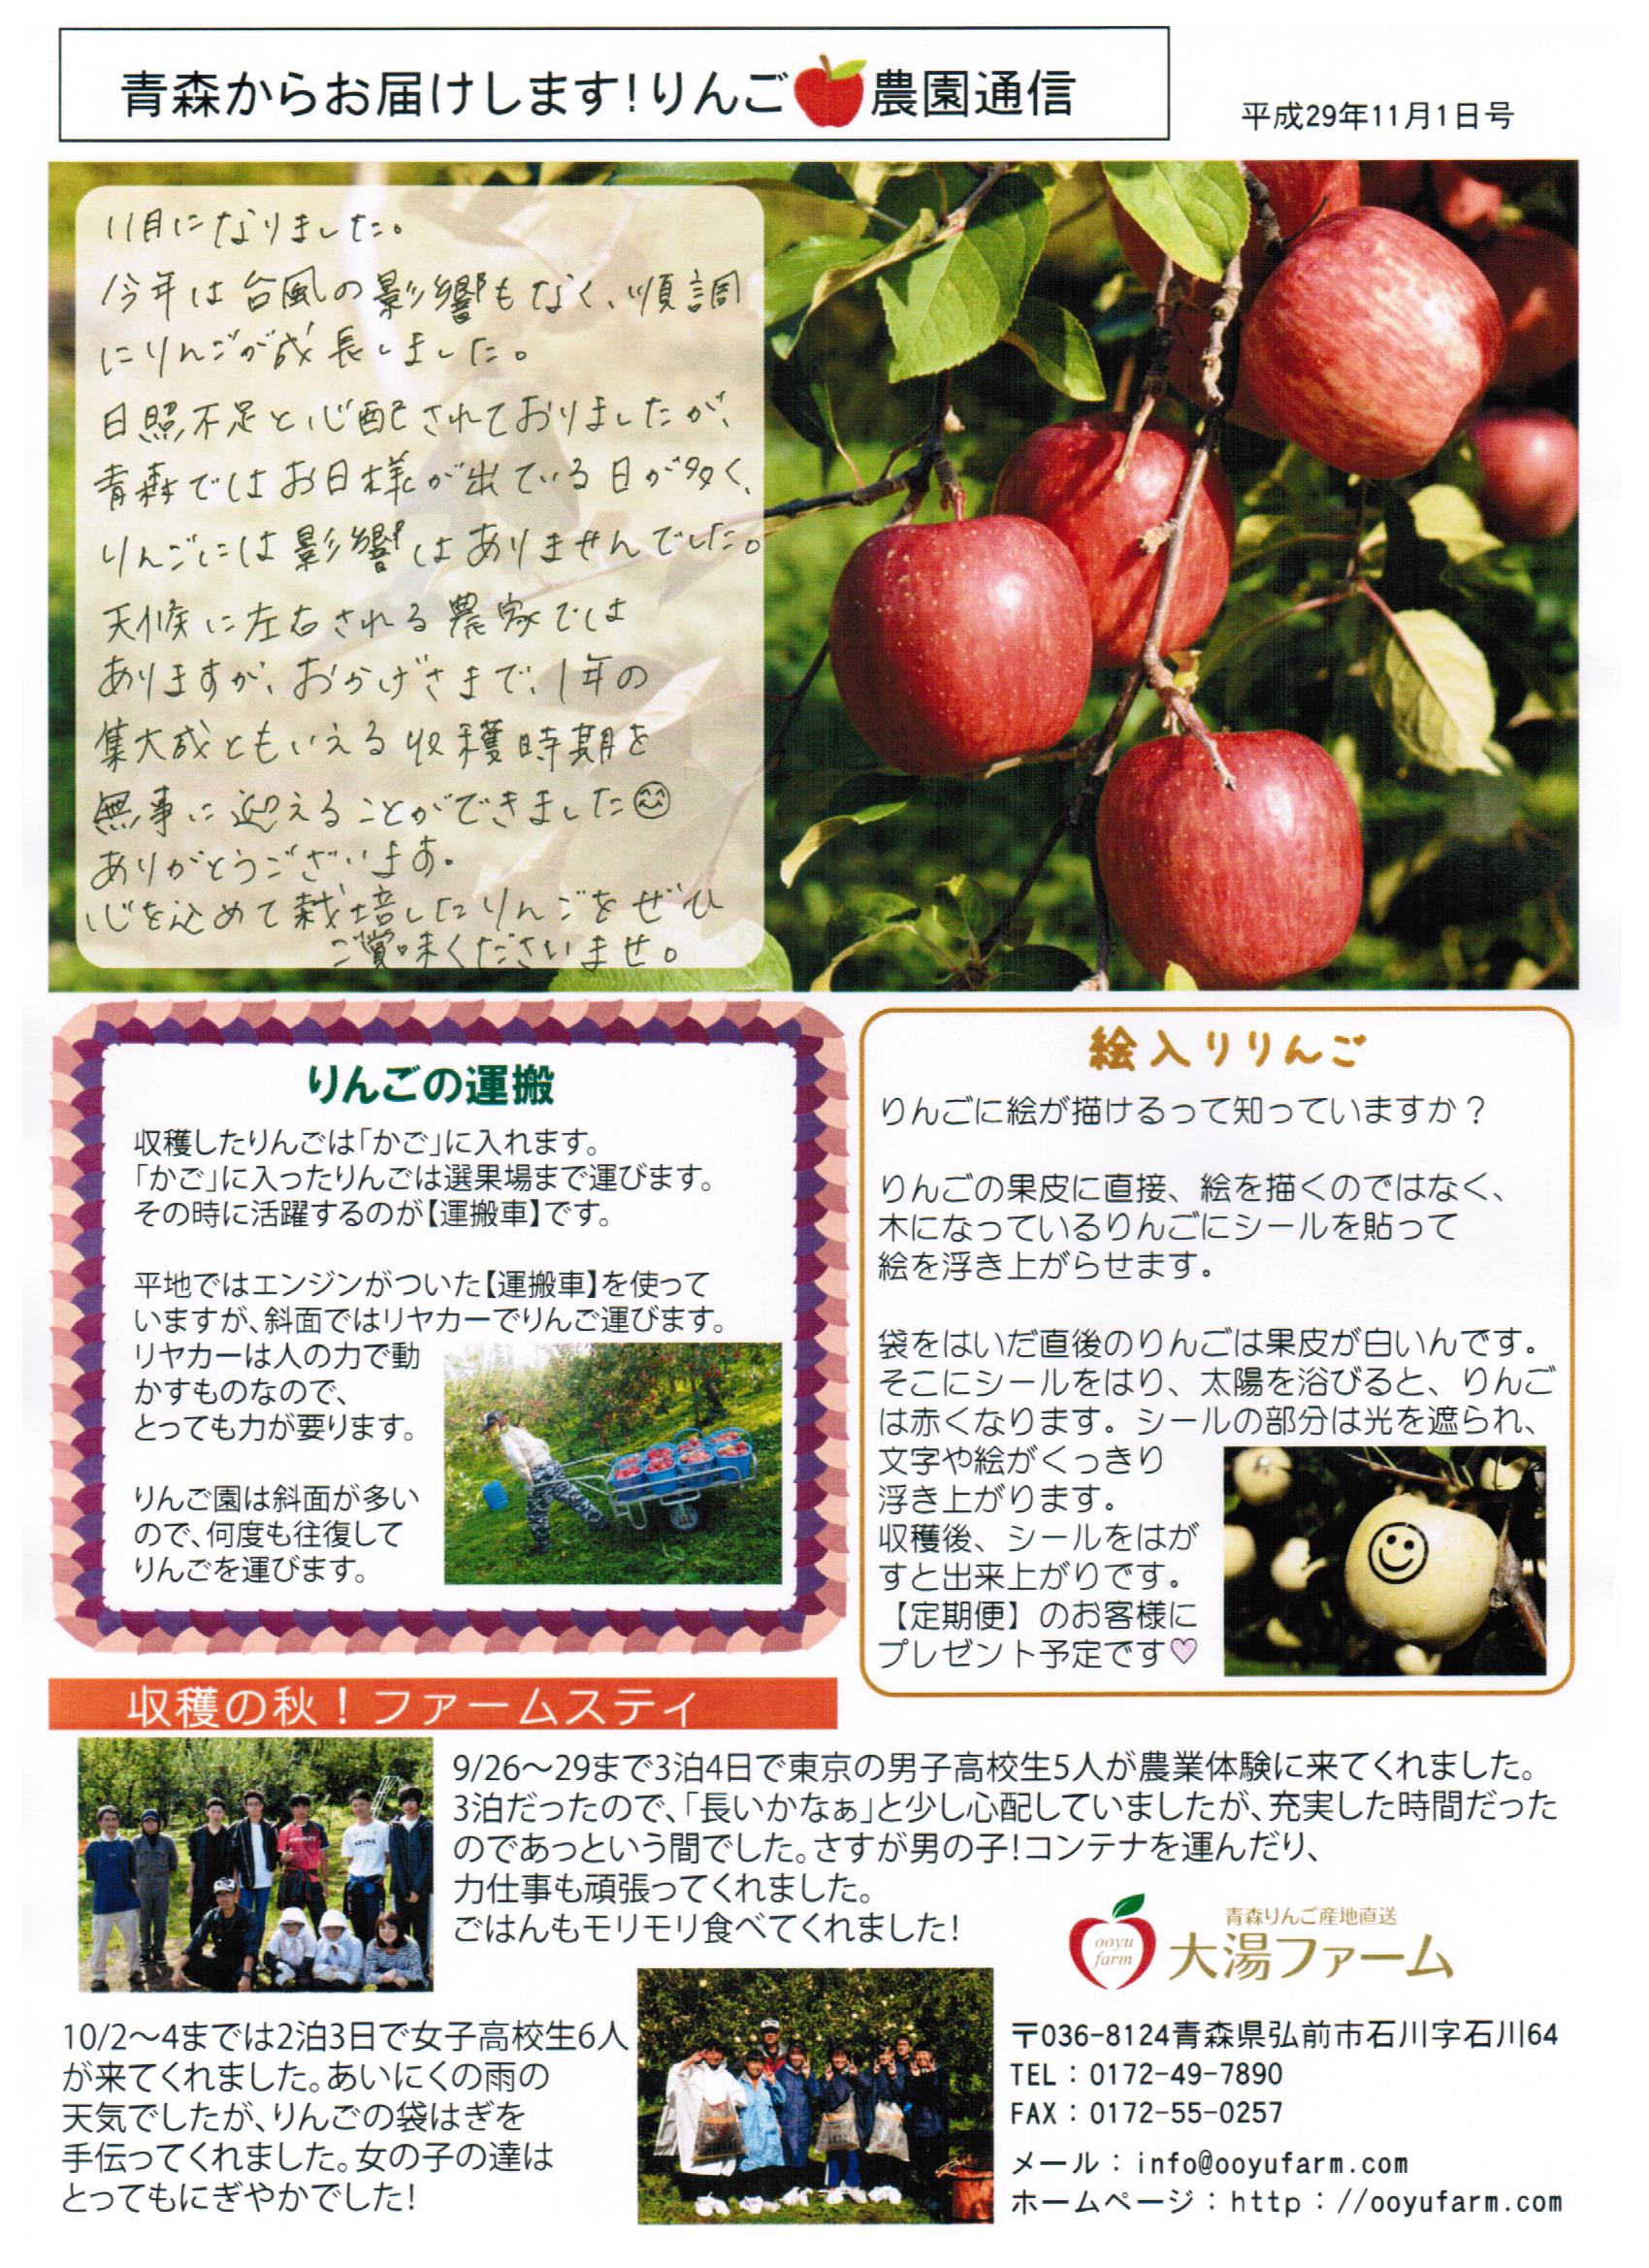 青森からお届けします!りんご農園通信
平成29年11月1日号
11月になりました。
今年は台風の影響もなく、順調
にりんごが成長しました。
日照不足と心配されておりましたが、
青森ではお日様が出ている日が多く、
りんごには影響はありませんでした。
天候に左右される農家では
ありますが、おかげさまで、1年の
集大成ともいえる収穫時期を
無事に迎えることができました😊
ありがとうございます。
心を込めて栽培したりんごをぜひ
ご賞味くださいませ。
りんごの運搬
収穫したりんごは「かご」に入れます。
「かご」に入ったりんごは選果場まで運びます。
その時に活躍するのが【運搬車】です。
平地ではエンジンがついた【運搬車】を使って
いますが、斜面ではリヤカーでりんご運びます。
リヤカーは人の力で動
かすものなので、
とっても力が要ります。
りんご園は斜面が多い
ので、何度も往復して
りんごを運びます。
絵入りりんご
りんごに絵が描けるって知っていますか？
りんごの果皮に直接、絵を描くのではなく、
木になっているりんごにシールを貼って
絵を浮き上がらせます。
袋をはいだ直後のりんごは果皮が白いんです。
そこにシールをはり、太陽を浴びると、りんご
は赤くなります。シールの部分は光を遮られ、
文字や絵がくっきり
浮き上がります。
収穫後、シールをはが
すと出来上がりです。
【定期便】のお客様に
プレゼント予定です♡
収穫の秋！ファームスティ
9/26～29まで3泊4日で東京の男子高校生5人が農業体験に来てくれました。
3泊だったので、「長いかなぁ」と少し心配していましたが、充実した時間だった
のであっという間でした。さすが男の子!コンテナを運んだり、
力仕事も頑張ってくれました。
ごはんもモリモリ食べてくれました!
10/2～4までは2泊3日で女子高校生6人
が来てくれました。あいにくの雨の
天気でしたが、りんごの袋はぎを
手伝ってくれました。女の子の達は
とってもにぎやかでした!
ooyu
farm
青森りんご産地直送
大湯ファーム
〒036-8124青森県弘前市石川字石川64
TEL：0172-49-7890
FAX：0172-55-0257
メール：info@ooyufarm.com
ホームページ：http：//ooyufarm.com